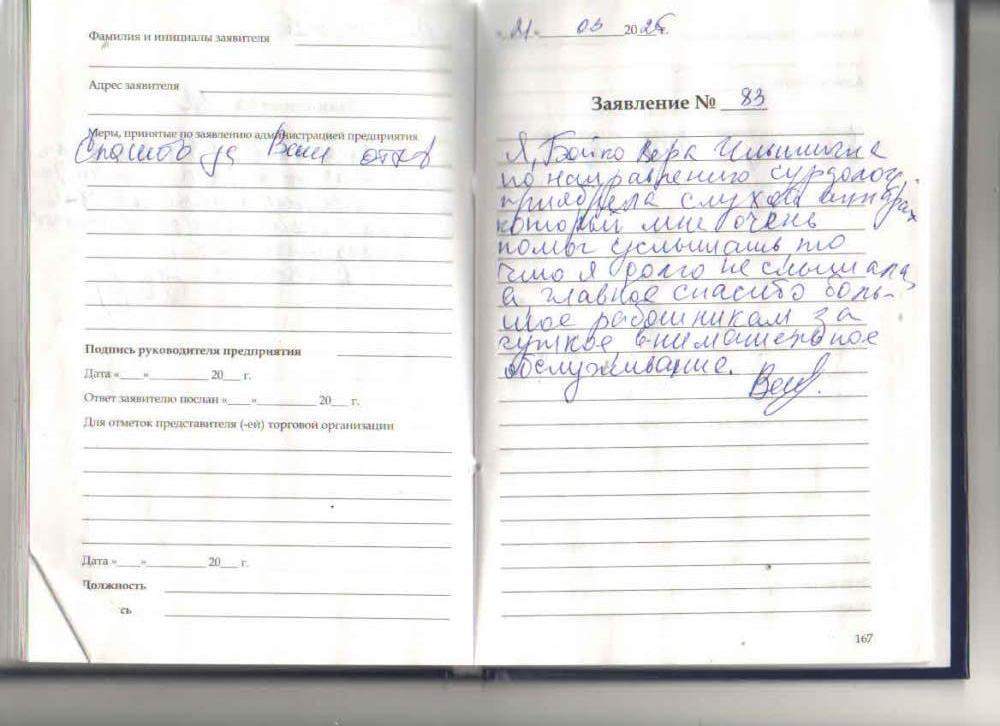 Фамилия и инициалы заявителя
Адрес заявителя
Меры, принятые по заявлению администрацией предприятия
Спасибо за Ваш отзыв
Подпись руководителя предприятия
Дата «___»__________ 20___ г.
Ответ заявителю послан «___»__________ 20___ г.
Для отметок представителя (-ей) торговой организации
Дата «___»__________ 20___ г.
Должность
сь
«21» 03 2025г.
Заявление № 83
Я, Бойко Вера
по направлению сурдолог.
приобрела слухов аппарат
который мне очень
помог услышать то
что я долго не слышала,
а главное спасибо боль-
шое работникам за
чуткое внимательное
обслуживание.
167